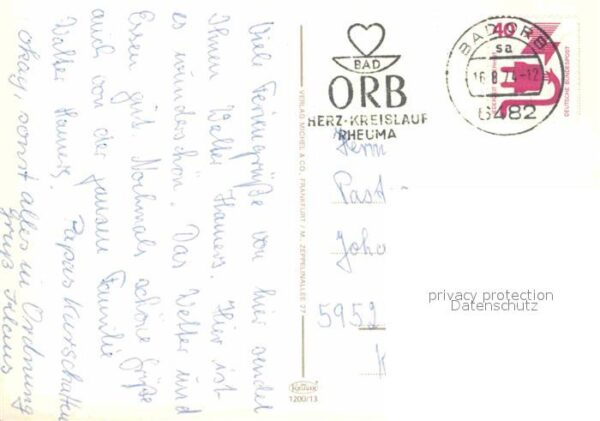 Viele Feriengrüße von hier sendet
Ihnen Walter Hamers. Hier ist
es wunderschön. Das Wetter und
Essen gut. Nochmals schöne Grüße
auch von der ganzen Familie
Walter Hamers. Papas Kurschatten
okay, sonst alles in Ordnung
Gruß Klaus
VERLAG MICHEL & CO., FRANKFURT / M. ZEPPELINALLEE 77
Krüger
1200/13
BAD
ORB
HERZ-KREISLAUF
RHEUMA
BAD ORB
sa
16.8.74-12
6482
40
DEUTSCHE BUNDESPOST
Herrn
Past
Joha
5952
privacy protection
Datenschutz